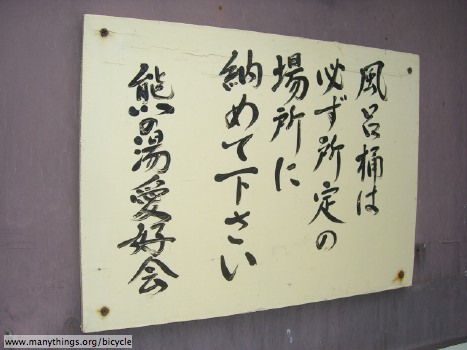 風呂桶は
必ず所定の
場所に
納めて下さい
熊の湯愛好会
www.manythings.org/bicycle